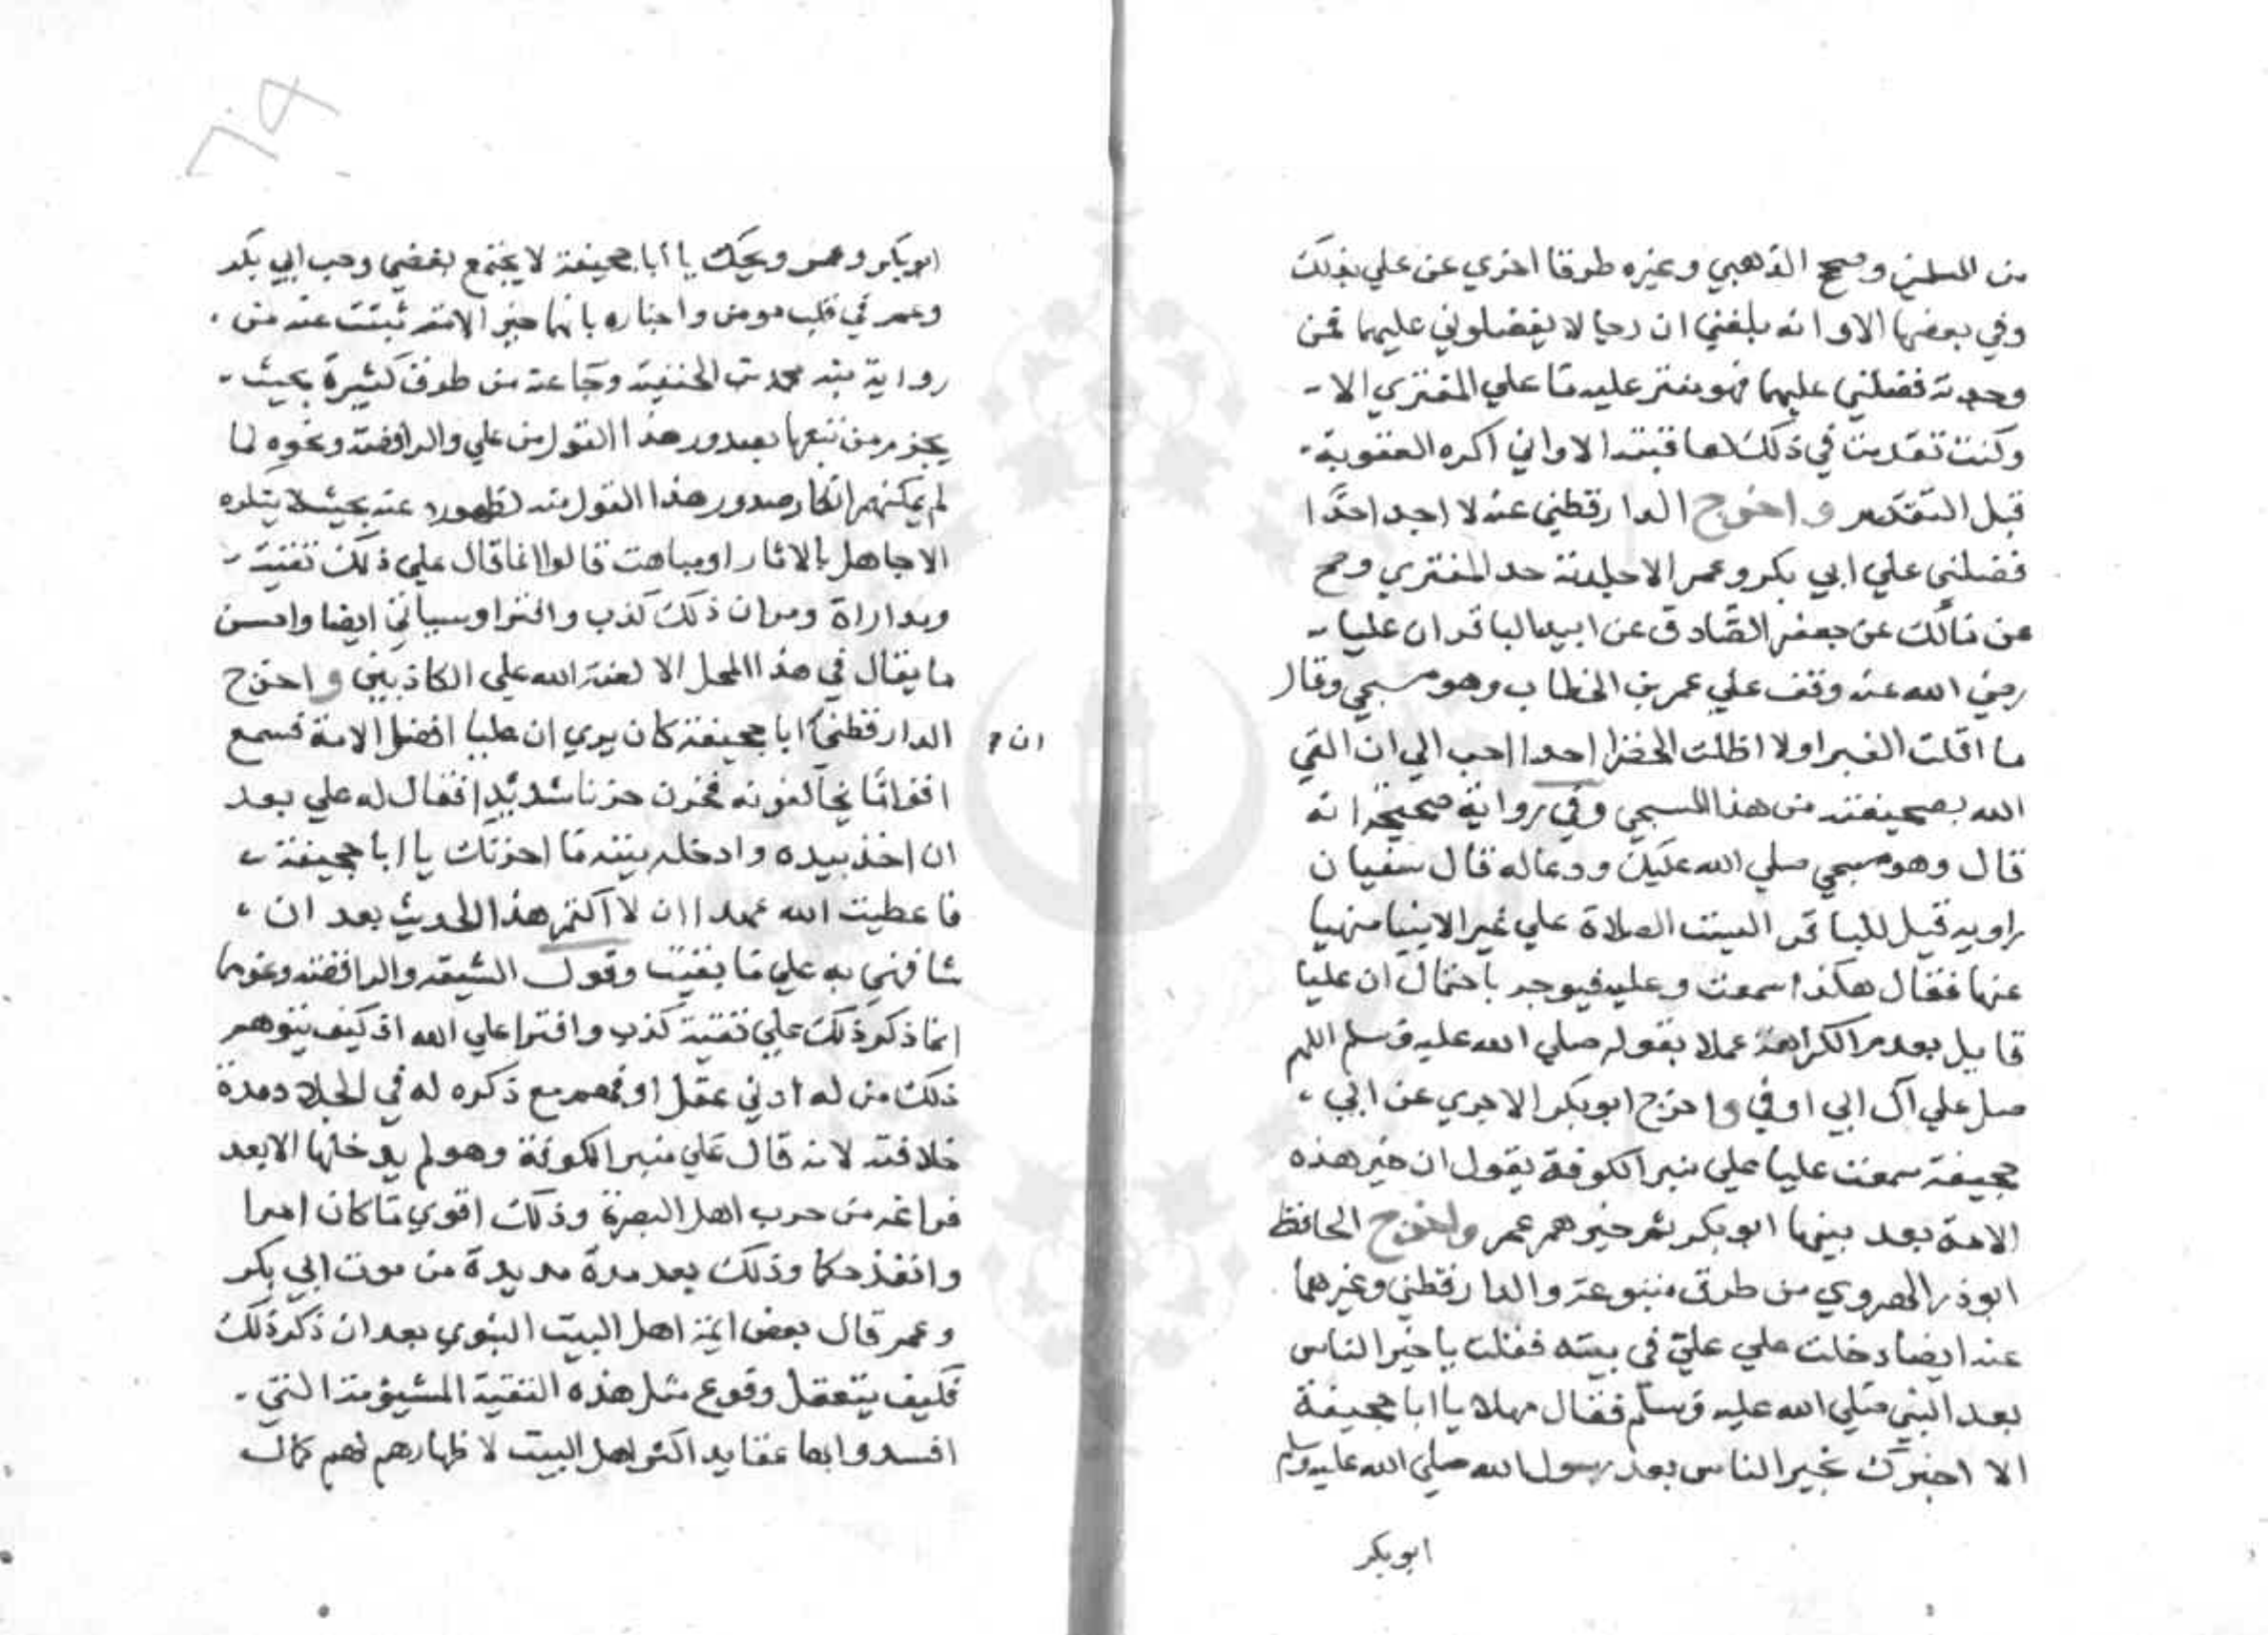 من المسلمين وصحح الذهبي وغيره طرقا اخري عن علي بذلك
وفي بعضها الا وانه بلغني ان رجالا يفضلوني عليهما فمن
وجدته فضلني عليهما فهو مفتر عليه ما علي المفتري الا
وكنت تقدمت في ذلك لعاقبت الا واني اكره العقوبة
قبل التقدم واخرج الدارقطني عنه لا اجد احدا
فضلني علي ابي بكر وعمر الا جلدته حد المفتري وصح
عن مالك عن جعفر الصادق عن ابيه الباقر ان عليا
رضي الله عنه وقف علي عمر بن الخطاب وهو مسجي وقال
ما اقلت الغبرا ولا اظلت الخضرا احدا احب الي ان القي
الله بصحيفته من هذا المسجي وفي رواية صحيحة انه
قال وهو مسجي صلي الله عليك ودعا له قال سفيان
راويه قيل للباقر اليست الصلاة علي غير الانبيا منهيا
عنها فقال هكذا سمعت وعليه فيوجه باحتمال ان عليا
قايل بعدم الكراهة عملا بقوله صلي الله عليه وسلم اللهم
صل علي آل ابي اوفي واخرج ابو بكر الاجري عن ابي
جحيفة سمعت عليا علي منبر الكوفة يقول ان خير هذه
الامة بعد نبيها ابو بكر ثم خيرهم عمر واخرج الحافظ
ابو ذر الهروي من طرق متنوعة والدارقطني وغيرهما
عنه ايضا دخلت علي علي في بيته فقلت يا خير الناس
بعد النبي صلي الله عليه وسلم فقال مهلا يا ابا جحيفة
الا اخبرك بخير الناس بعد رسول الله صلي الله عليه وسلم
ابو بكر
ابو بكر وعمر ويحك يا أبا جحيفة لا يجتمع بغضي وحب ابي بكر
وعمر في قلب مومن واخباره بانهما خير الامة ثبتت عنه من
رواية ابنه محمد بن الحنفية وجاعة من طرق كثيرة بحيث
يجزم من تتبعها بصدور هذا القول من علي والرافضة ونحوه لما
لم يمكنهم انكار صدور هذا القول منه لظهوره عنه بحيث لا ينكره
الا جاهل بالاثار او مباهت قالوا انما قال علي ذلك تقية
ومداراة ومر ان ذلك كذب وافترا وسياتي ايضا واحسن
ما يقال في هذا المحل الا لعنة الله علي الكاذبين واخرج
الدارقطني ابا جحيفة كان يري ان عليا افضل الامة فسمع
ان
اقواما يخالفونه فحزن حزنا شديدا فقال له علي بعد
ان اخذ بيده وادخله بيته ما احزنك يا ابا جحيفة
فاعطيت الله عهدا ان لا اكتم هذا الحديث بعد ان
شافهني به علي ما بقيت وقول الشيعة والرافضة ونحوهما
انما ذكر ذلك علي تقية كذب وافترا علي الله اذ كيف يتوهم
ذلك من له ادني عقل او فهم مع ذكره له في الخلا ومدة
خلافته لانه قال علي منبر الكوفة وهو لم يدخلها الا بعد
فراغه من حرب اهل البصرة وذلك اقوي ما كان امرا
وانفذ حكما وذلك بعد مدة مديدة من موت ابي بكر
وعمر قال بعض ايمة اهل البيت النبوي بعد ان ذكر ذلك
فكيف يتعقل وقوع مثل هذه التقية المشيؤمة التي
افسدوا بها عقايد اكثر اهل البيت لاظهارهم لهم كمال